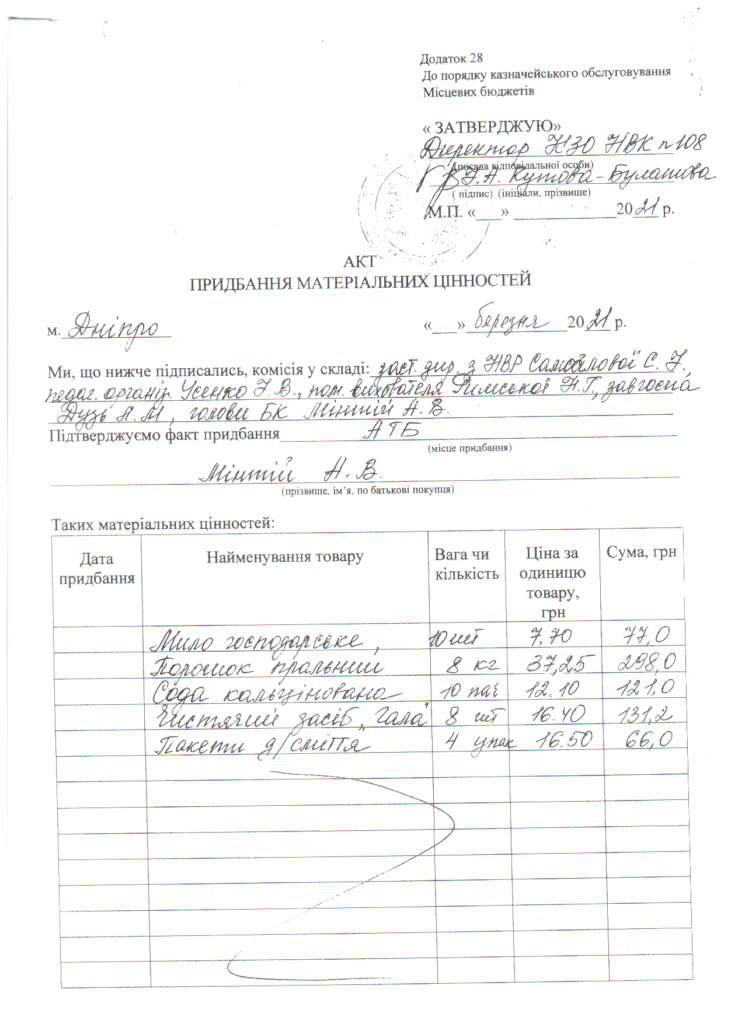 Додаток 28
До порядку казначейського обслуговування
Місцевих бюджетів
« ЗАТВЕРДЖУЮ»
Директор КЗО НВК №108
(посада відповідальної особи)
Э.А. Кутова-Булатова
( підпис) (ініціали, прізвище)
М.П. «___» ____________2021 р.
АКТ
ПРИДБАННЯ МАТЕРІАЛЬНИХ ЦІННОСТЕЙ
м. Дніпро «___» березня 2021 р.
Ми, що нижче підписались, комісія у складі: заст. дир. з НВР Самойлової С.
педаг. органір. Усенко Н.В., пом. вихователя Римської Н.Г., завгоспа
Дузь А.М, голови БК Мінтій А.В.
Підтверджуємо факт придбання АТБ
(місце придбання)
Мінтій А.В.
(прізвище, ім’я, по батькові покупця)
Таких матеріальних цінностей:
Дата придбання Найменування товару Вага чи кількість Ціна за одиницю товару, грн Сума, грн
Мило господарське, 10 шт 7.70 77,0
Порошок пральний 8 кг 37,25 298,0
Сода кальцінована 10 пач 12.10 121,0
Чистячий засіб „Гала" 8 шт 16.40 131,2
Пакети д/сміття 4 упак 16.50 66,0